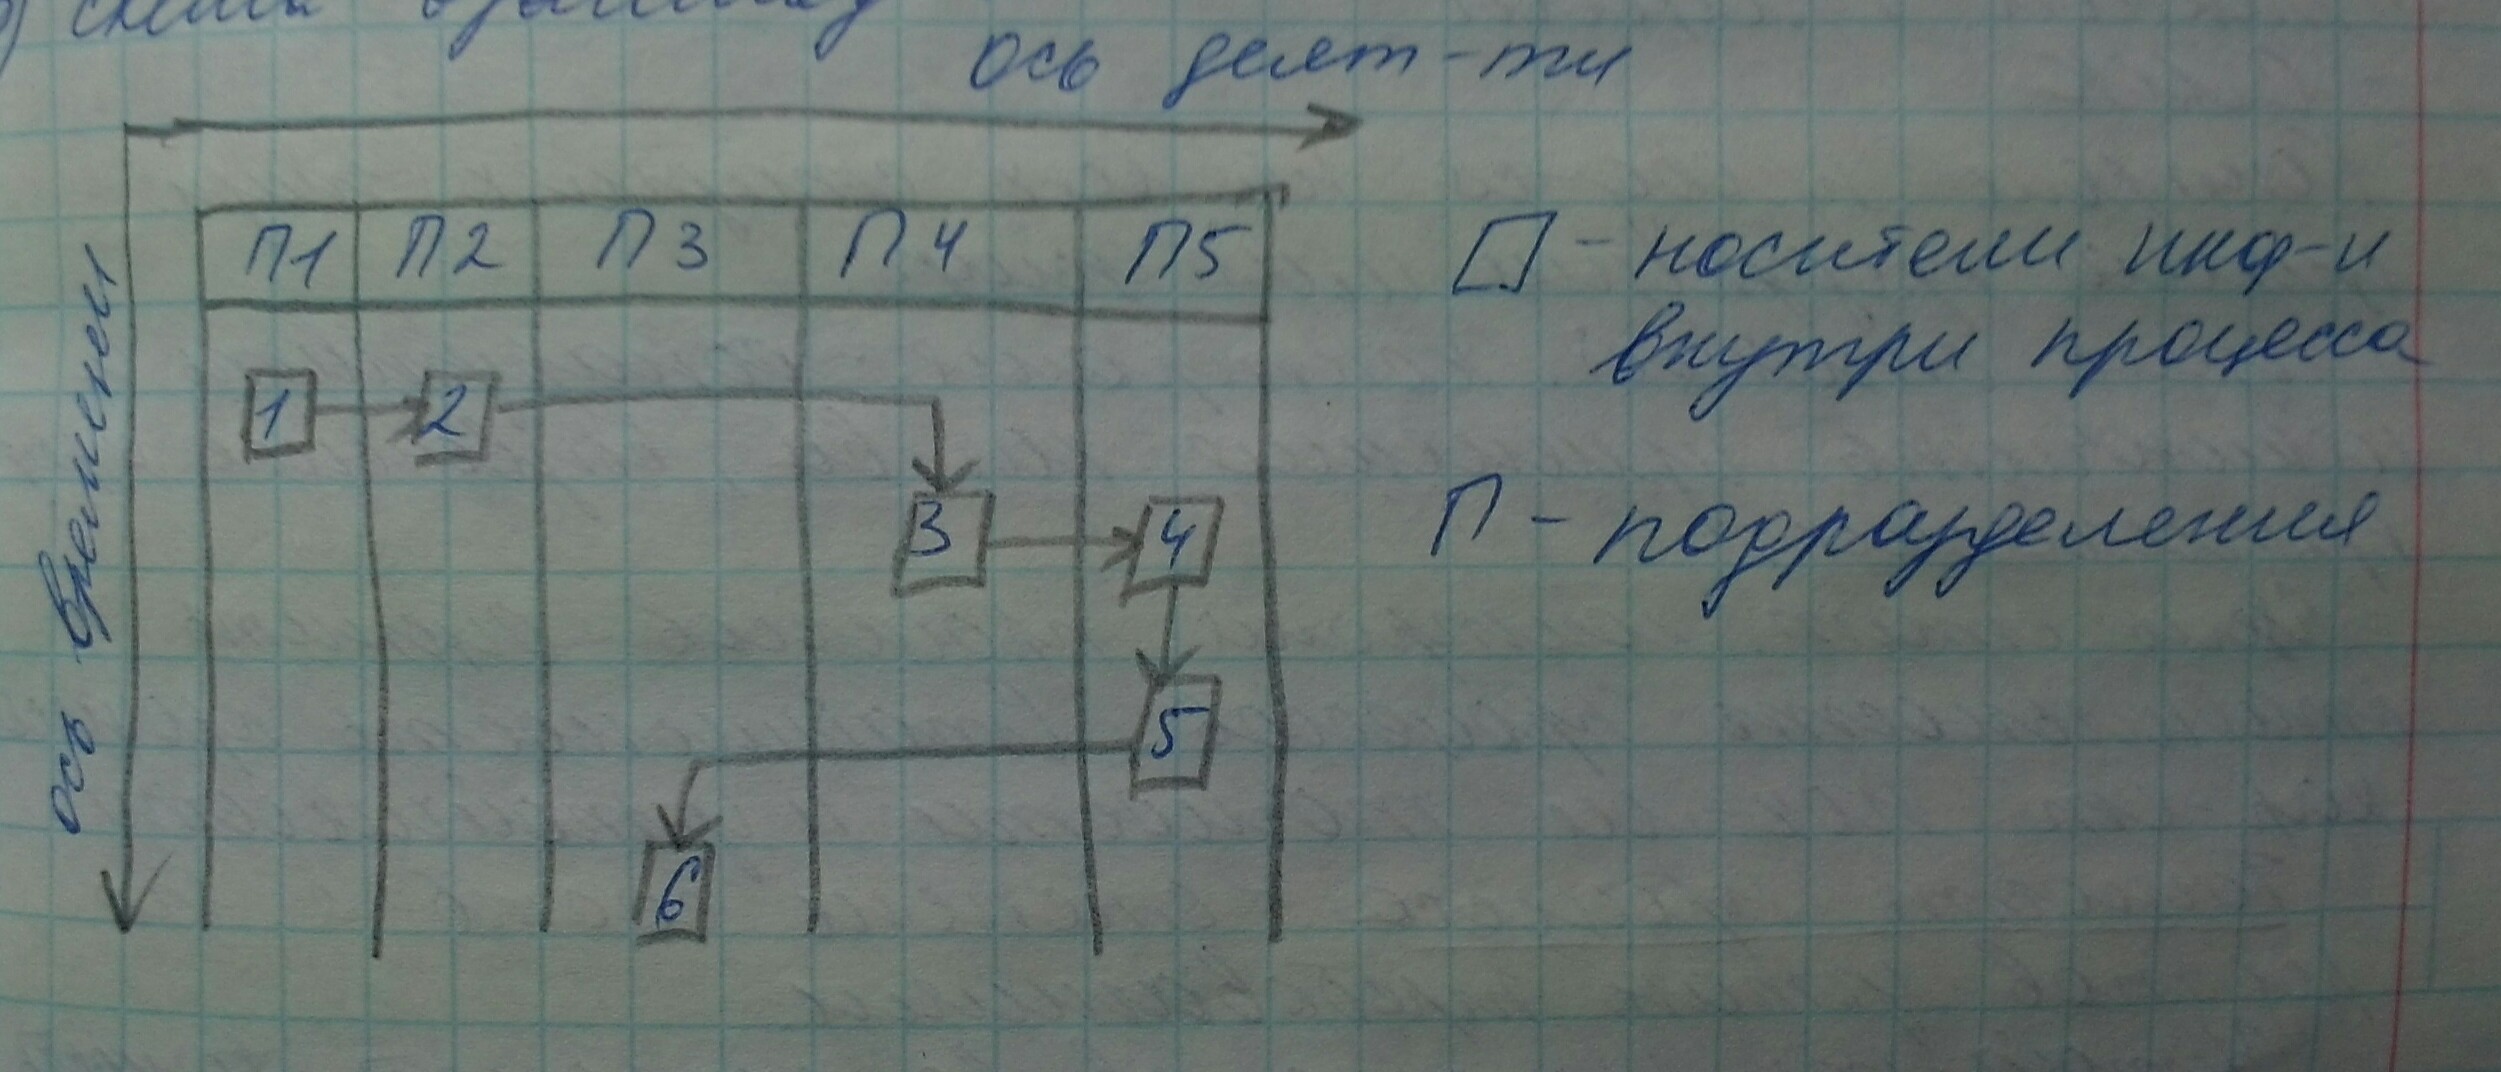 схема
ось деят-ти
П1 П2 П3 П4 П5
ось времени
1 2
3 4
5
6
[] - носители инф-и
внутри процесса
П - подразделения